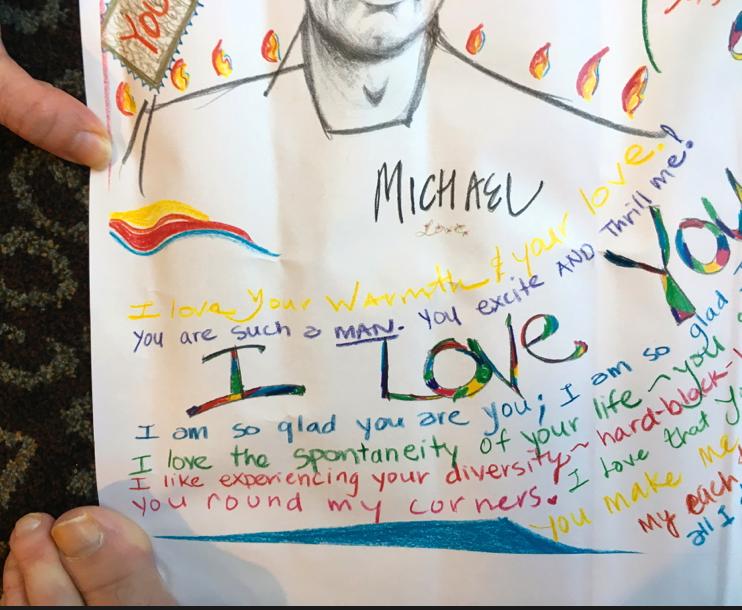 You
MICHAEL
Love,
I love your warmth & your love.
You are such a MAN. You excite AND Thrill me!
I Love You
I am so glad you are you; I am so glad
I love the spontaneity of your life ~ you
I like experiencing your diversity ~ hard-block-
you round my corners. I love that
You make me
My each
all I